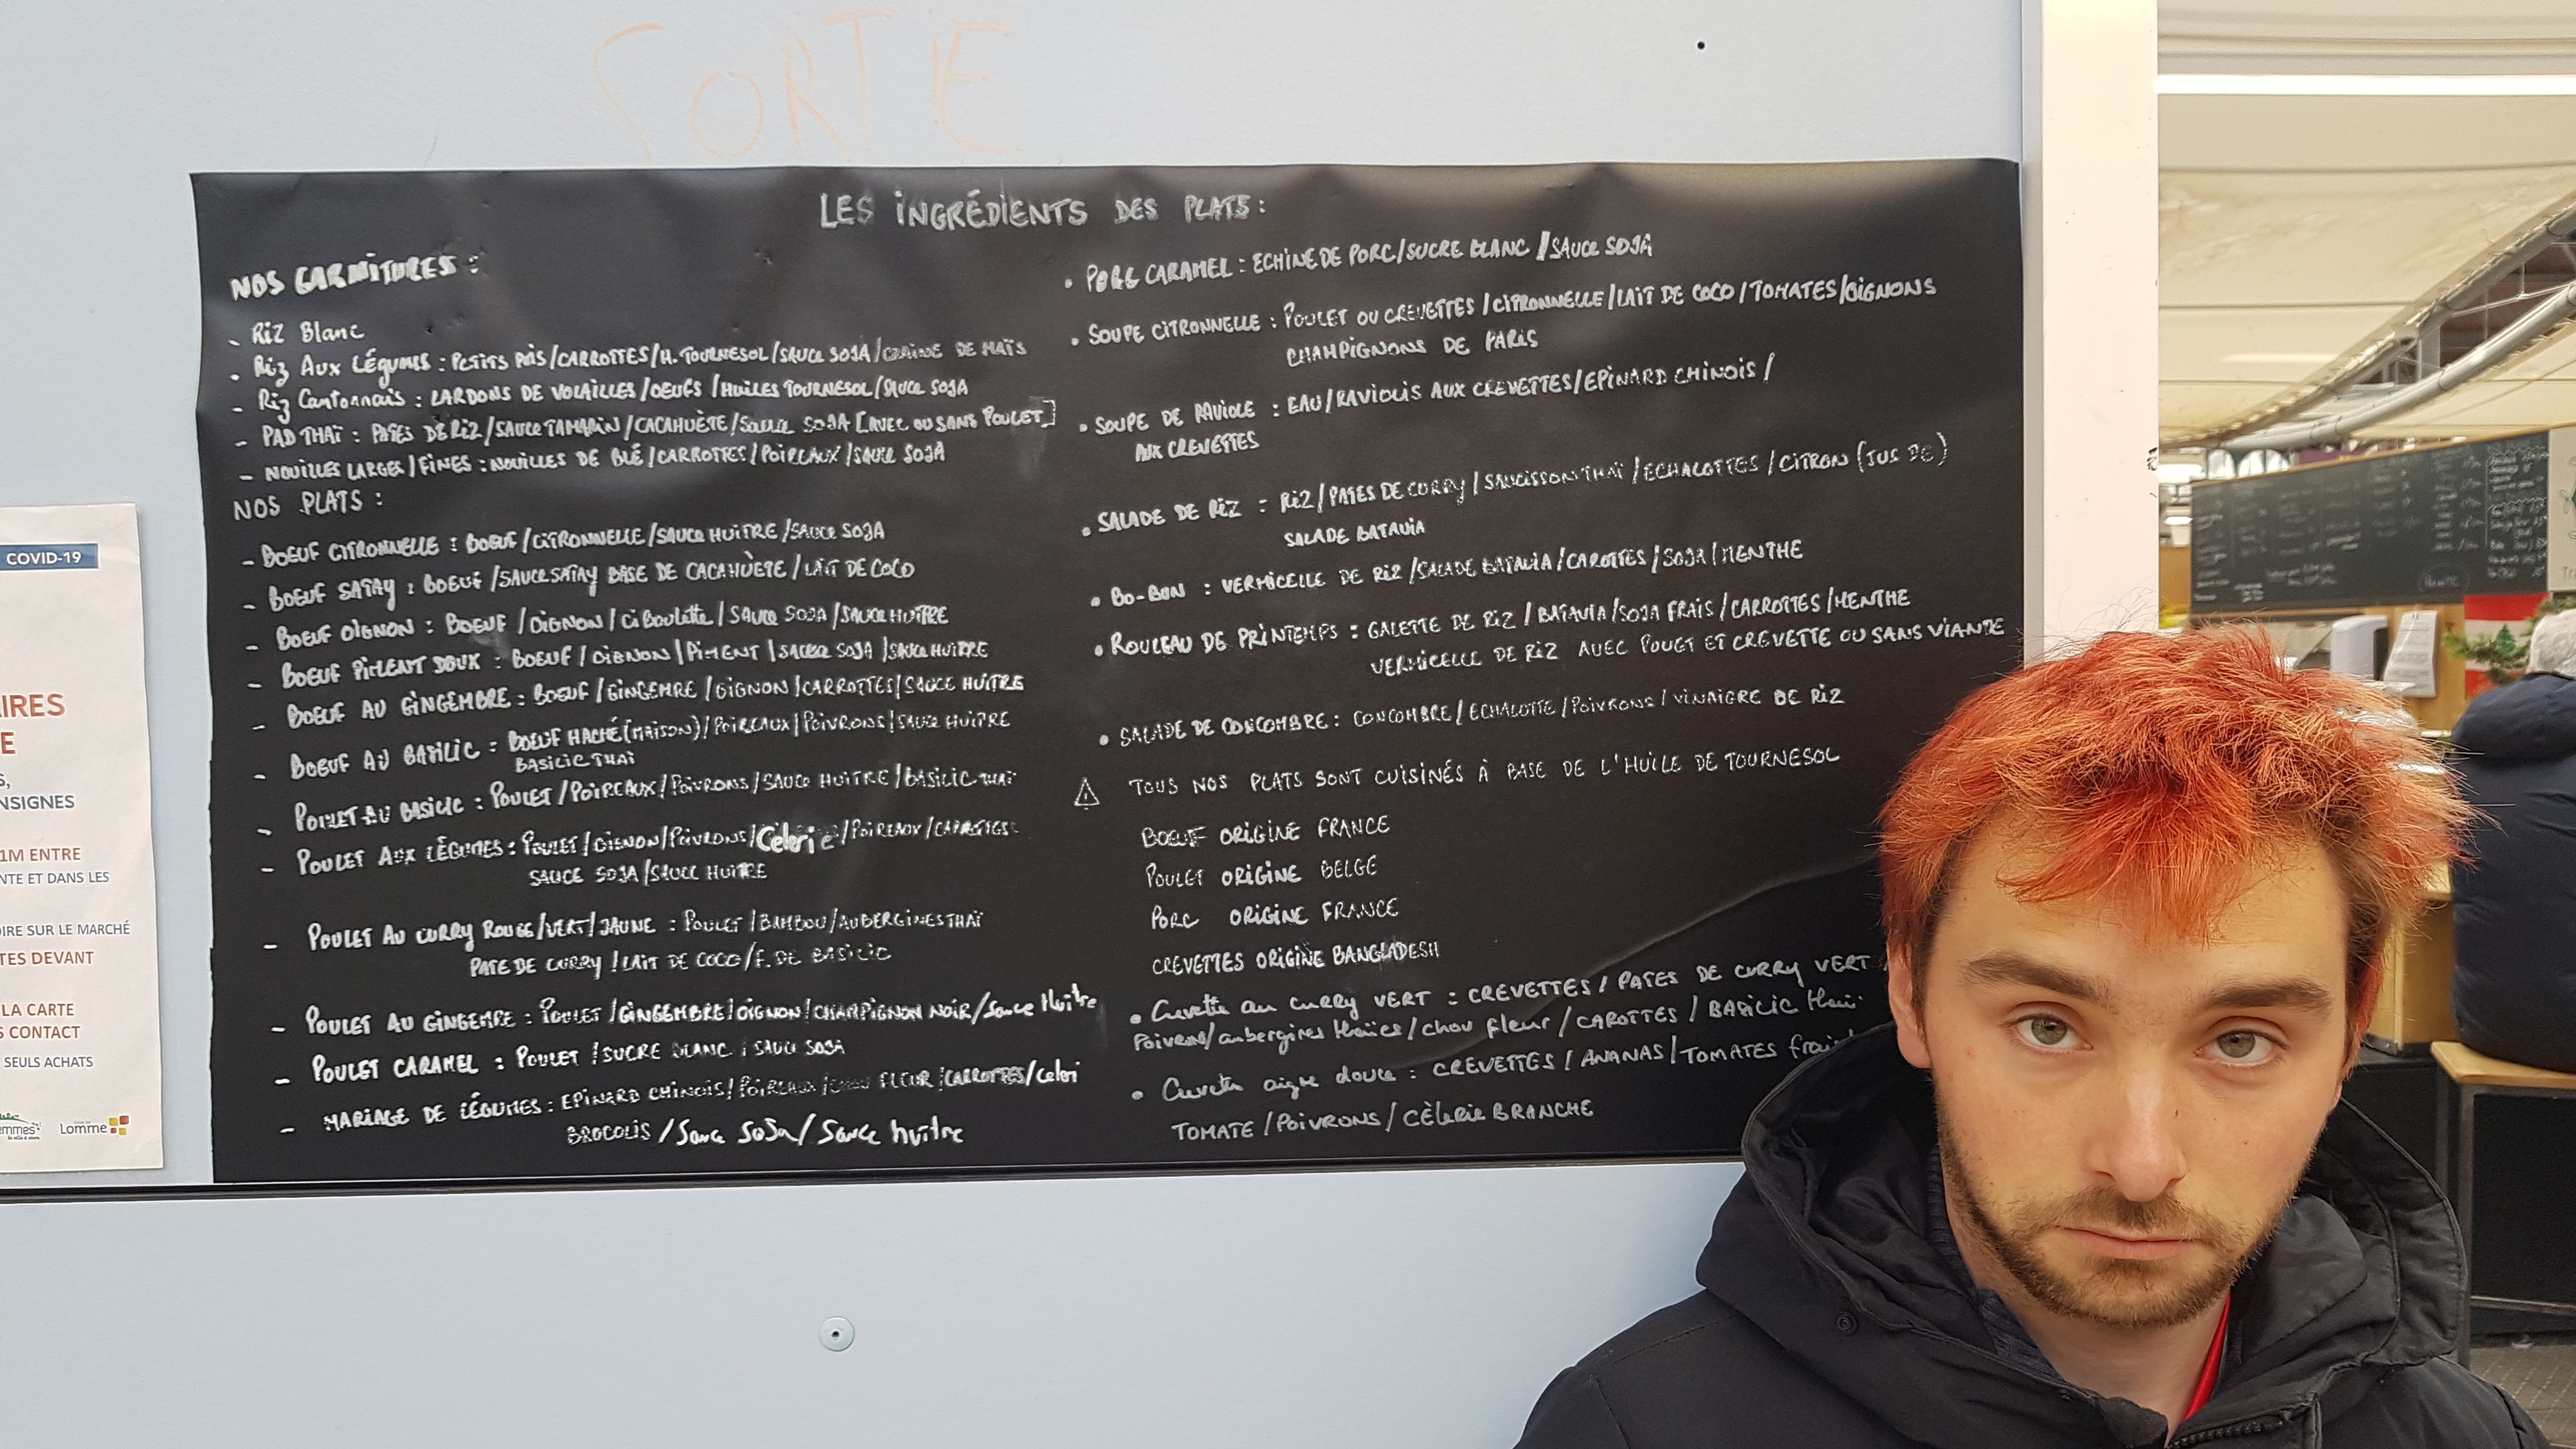 SORTIE
LES INGRÉDIENTS DES PLATS :
NOS GARNITURES :
- Riz Blanc
- Riz Aux Légumes : PETITS POIS/CARROTTES/H.TOURNESOL/SAUCE SOJA/GRAINE DE MAÏS
- Riz Cantonnais : LARDONS DE VOLAILLES/OEUFS/HUILES TOURNESOL/SAUCE SOJA
- PAD THAÏ : PATES DE RIZ/SAUCE TAMARIN/CACAHUÈTE/SAUCE SOJA [AVEC OU SANS POULET]
- NOUILLES LARGES/FINES : NOUILLES DE BLÉ/CARROTTES/POIREAUX/SAUCE SOJA
NOS PLATS :
- BOEUF CITRONNELLE : BOEUF/CITRONNELLE/SAUCE HUITRE/SAUCE SOJA
- BOEUF SATAY : BOEUF/SAUCE SATAY BASE DE CACAHUÈTE/LAIT DE COCO
- BOEUF OIGNON : BOEUF/OIGNON/CiBoulette/SAUCE SOJA/SAUCE HUÎTRE
- BOEUF PIMENT DOUX : BOEUF/OIGNON/PIMENT/SAUCE SOJA/SAUCE HUITRE
- BOEUF AU GINGEMBRE : BOEUF/GINGEMRE/OIGNON/CARROTTES/SAUCE HUÎTRE
- BOEUF AU BASILIC : BOEUF HACHÉ (MAISON)/POIREAUX/POIVRONS/SAUCE HUITRE
BASILIC THAÏ
- POULET AU BASILIC : POULET/POIREAUX/POIVRONS/SAUCE HUITRE/BASILIC THAÏ
- POULET AUX LÉGUMES : POULET/OIGNON/POIVRONS/Celerie/POIREAUX/CARROTTES
SAUCE SOJA/SAUCE HUITRE
- POULET AU CURRY ROUGE/VERT/JAUNE : POULET/BAMBOU/AUBERGINES THAÏ
PATE DE CURRY/LAIT DE COCO/F. DE BASILIC
- POULET AU GINGEMRE : POULET/GINGEMBRE/OIGNON/CHAMPIGNON NOIR/Sauce Huître
- POULET CARAMEL : POULET/SUCRE BLANC/SAUCE SOJA
- MARIAGE DE LÉGUMES : EPINARD CHINOIS/POIREAUX/CHOU FLEUR/CARROTTES/Celeri
BROCOLIS/Sauce SoJa/Sauce huître
• PORC CARAMEL : ECHINE DE PORC/SUCRE BLANC/SAUCE SOJA
• SOUPE CITRONNELLE : POULET OU CREVETTES/CITRONNELLE/LAIT DE COCO/TOMATES/OIGNONS
CHAMPIGNONS DE PARIS
• SOUPE DE RAVIOLE : EAU/RAVIOLIS AUX CREVETTES/EPINARD CHINOIS/
AUX CREVETTES
• SALADE DE RIZ : RIZ/PATES DE CURRY/SAUCISSON THAÏ/ECHALOTTES/CITRON (JUS DE)
SALADE BATAVIA
• BO-BUN : VERMICELLE DE RIZ/SALADE BATAVIA/CAROTTES/SOJA/MENTHE
• ROULEAU DE PRINTEMPS : GALETTE DE RIZ/BATAVIA/SOJA FRAIS/CARROTTES/MENTHE
VERMICELLE DE RIZ AVEC POUET ET CREVETTE OU SANS VIANDE
• SALADE DE CONCOMBRE : CONCOMBRE/ECHALOTTE/POIVRONS/VINAIGRE DE RIZ
⚠ TOUS NOS PLATS SONT CUISINÉS À BASE DE L'HUILE DE TOURNESOL
BOEUF ORIGINE FRANCE
POULET ORIGINE BELGE
PORC ORIGINE FRANCE
CREVETTES ORIGINE BANGLADESH
• Crevette au curry VERT : CREVETTES/PATES DE CURRY VERT
Poivrons/aubergines thaïes/chou fleur/CAROTTES/BASILIC thaï
• Crevette aigre douce : CREVETTES/ANANAS/TOMATES fraich
TOMATE/POIVRONS/CÈLERIE BRANCHE
COVID-19
IRES
E
S,
NSIGNES
1M ENTRE
NTE ET DANS LES
OIRE SUR LE MARCHÉ
TES DEVANT
LA CARTE
S CONTACT
SEULS ACHATS
emmes
Lomme